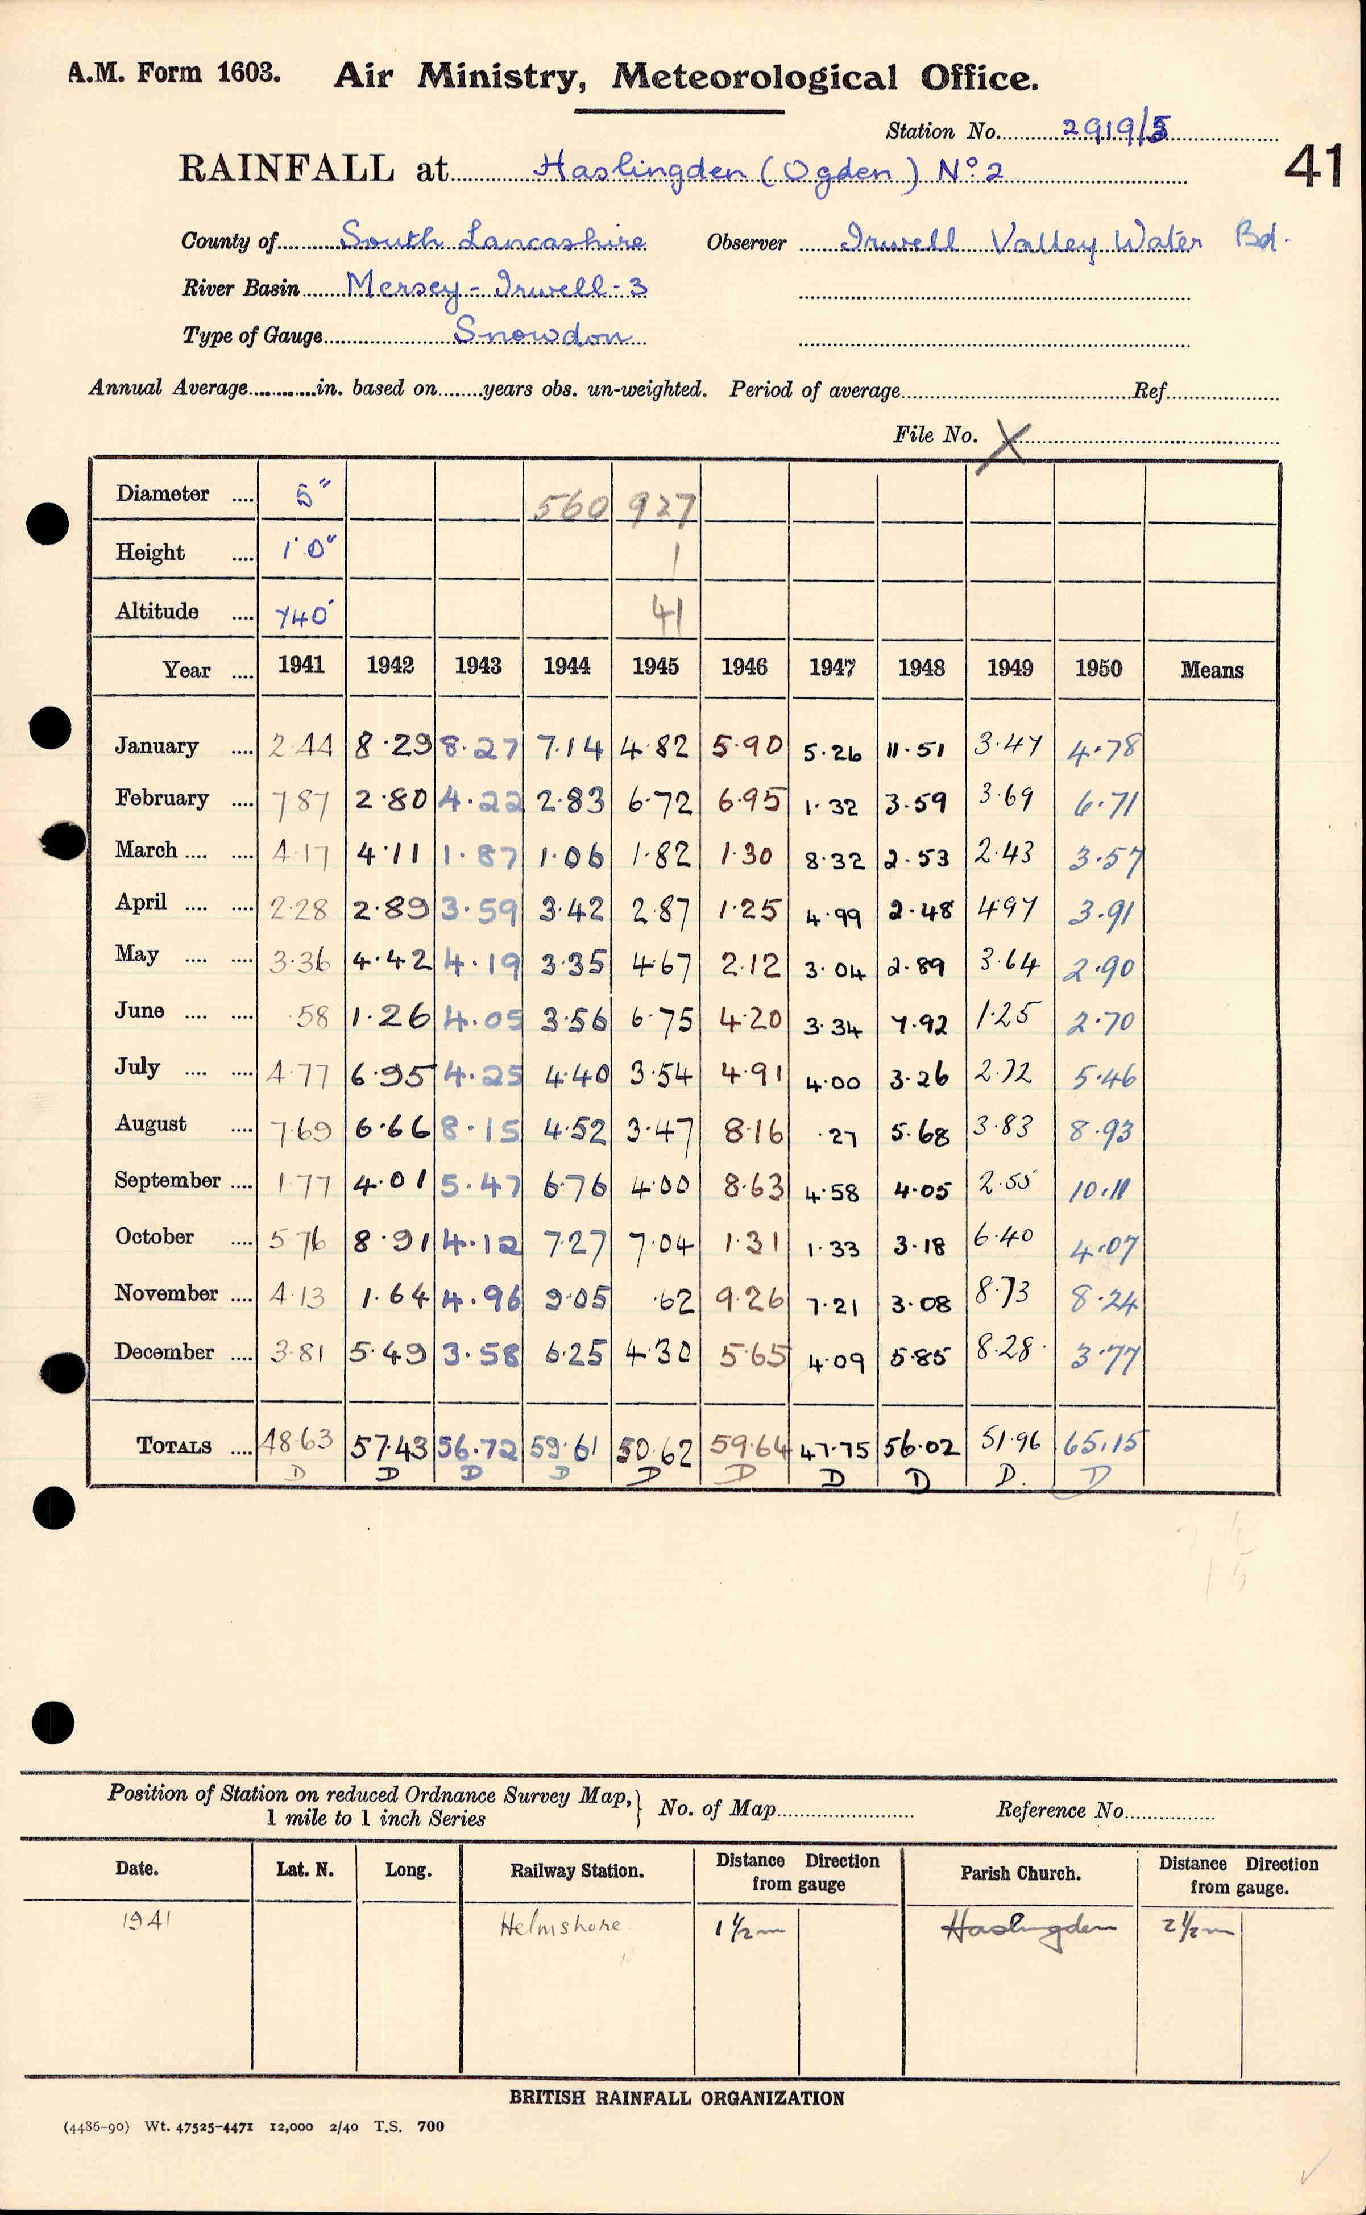 A.M. Form 1603. Air Ministry, Meteorological Office.
Station No. 2919/5
41
RAINFALL at Haslingden (Ogden) No. 2
County of South Lancashire Observer Irwell Valley Water Bd.
River Basin Mersey - Irwell - 3
Type of Gauge Snowdon
Annual Average............in. based on........years obs. un-weighted. Period of average............Ref............
File No. X
Diameter .... 5" 560 927
Height .... 1' 0" 1
Altitude .... 740' 41
Year .... 1941 1942 1943 1944 1945 1946 1947 1948 1949 1950 Means
January .... 2.44 8.29 8.27 7.14 4.82 5.90 5.26 11.51 3.47 4.78
February .... 7.87 2.80 4.22 2.83 6.72 6.95 1.32 3.59 3.69 6.71
March .... .... 4.17 4.11 1.87 1.06 1.82 1.30 8.32 2.53 2.43 3.57
April .... .... 2.28 2.89 3.59 3.42 2.87 1.25 4.99 2.48 4.97 3.91
May .... .... 3.36 4.42 4.19 3.35 4.67 2.12 3.04 2.89 3.64 2.90
June .... .... .58 1.26 4.05 3.56 6.75 4.20 3.34 7.92 1.25 2.70
July .... .... 4.77 6.95 4.25 4.40 3.54 4.91 4.00 3.26 2.72 5.46
August .... 7.69 6.66 8.15 4.52 3.47 8.16 .27 5.68 3.83 8.93
September .... 1.77 4.01 5.47 6.76 4.00 8.63 4.58 4.05 2.55 10.11
October .... 5.76 8.91 4.12 7.27 7.04 1.31 1.33 3.18 6.40 4.07
November .... 4.13 1.64 4.96 9.05 .62 9.26 7.21 3.08 8.73 8.24
December .... 3.81 5.49 3.58 6.25 4.30 5.65 4.09 5.85 8.28 3.77
TOTALS .... 48.63 57.43 56.72 59.61 50.62 59.64 47.75 56.02 51.96 65.15
D D D D D D D D D. D
Position of Station on reduced Ordnance Survey Map, } No. of Map............ Reference No............
1 mile to 1 inch Series
Date. Lat. N. Long. Railway Station. Distance from gauge Direction Parish Church. Distance from gauge. Direction
1941 Helmshore 1½m Haslingden 2½m
BRITISH RAINFALL ORGANIZATION
(4486-90) Wt. 47525-4471 12,000 2/40 T.S. 700